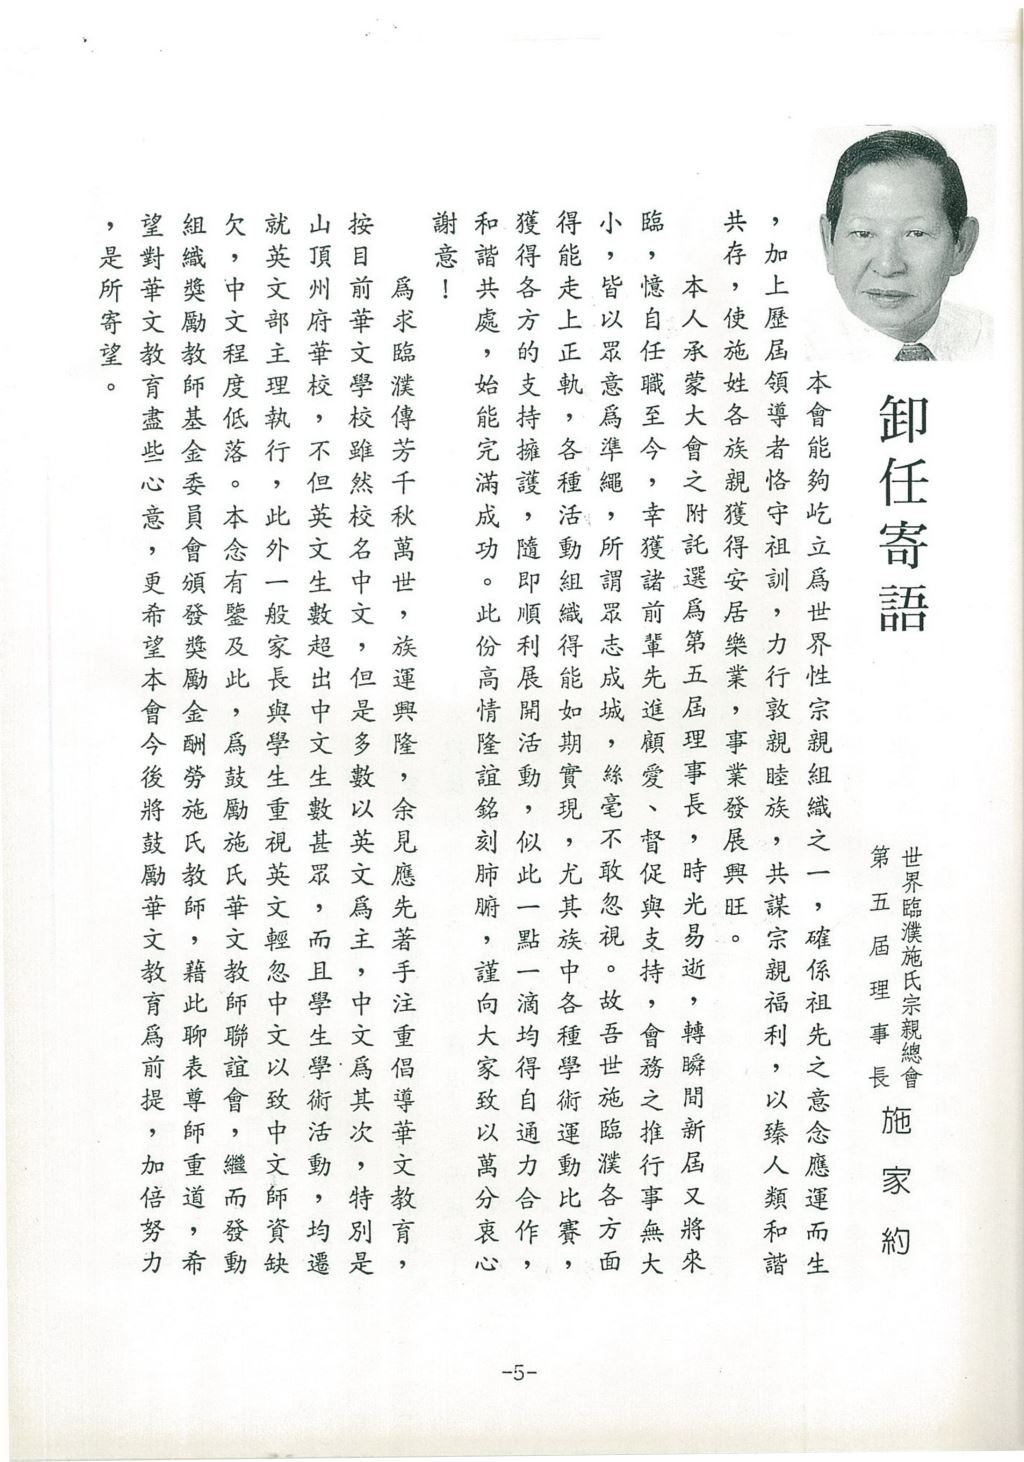 卸任寄語
世界臨濮施氏宗親總會
第五屆理事長
施家約
本會能夠屹立爲世界性宗親組織之一，確係祖先之意念應運而生
，加上歷屆領導者恪守祖訓，力行敦親睦族，共謀宗親福利，以臻人類和諧
共存，使施姓各族親獲得安居樂業，事業發展興旺。
本人承蒙大會之附託選爲第五屆理事長，時光易逝，轉瞬間新屆又將來
臨，憶自任職至今，幸獲諸前輩先進顧愛、督促與支持，會務之推行事無大
小，皆以眾意爲準繩，所謂眾志成城，絲毫不敢忽視。故吾世施臨濮各方面
得能走上正軌，各種活動組織得能如期實現，尤其族中各種學術運動比賽，
獲得各方的支持擁護，隨即順利展開活動，似此一點一滴均得自通力合作，
和諧共處，始能完滿成功。此份高情隆誼銘刻肺腑，謹向大家致以萬分衷心
謝意！
爲求臨濮傳芳千秋萬世，族運興隆，余見應先著手注重倡導華文教育，
按目前華文學校雖然校名中文，但是多數以英文爲主，中文爲其次，特別是
山頂州府華校，不但英文生數超出中文生數甚眾，而且學生學術活動，均遷
就英文部主理執行，此外一般家長與學生重視英文輕忽中文以致中文師資缺
欠，中文程度低落。本念有鑒及此，爲鼓勵施氏華文教師聯誼會，繼而發動
組織獎勵教師基金委員會頒發獎勵金酬勞施氏教師，藉此聊表尊師重道，希
望對華文教育盡些心意，更希望本會今後將鼓勵華文教育爲前提，加倍努力
，是所寄望。
-5-